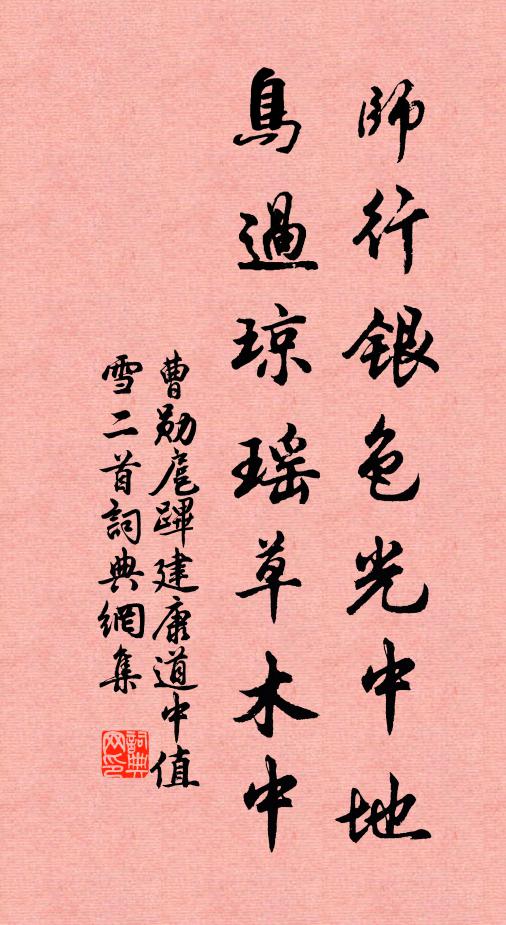 師行銀色光中地
鳥過琼瑶草木中
曹勛扈蹕建康道中值
雪二首詞典網集
詞典
网印